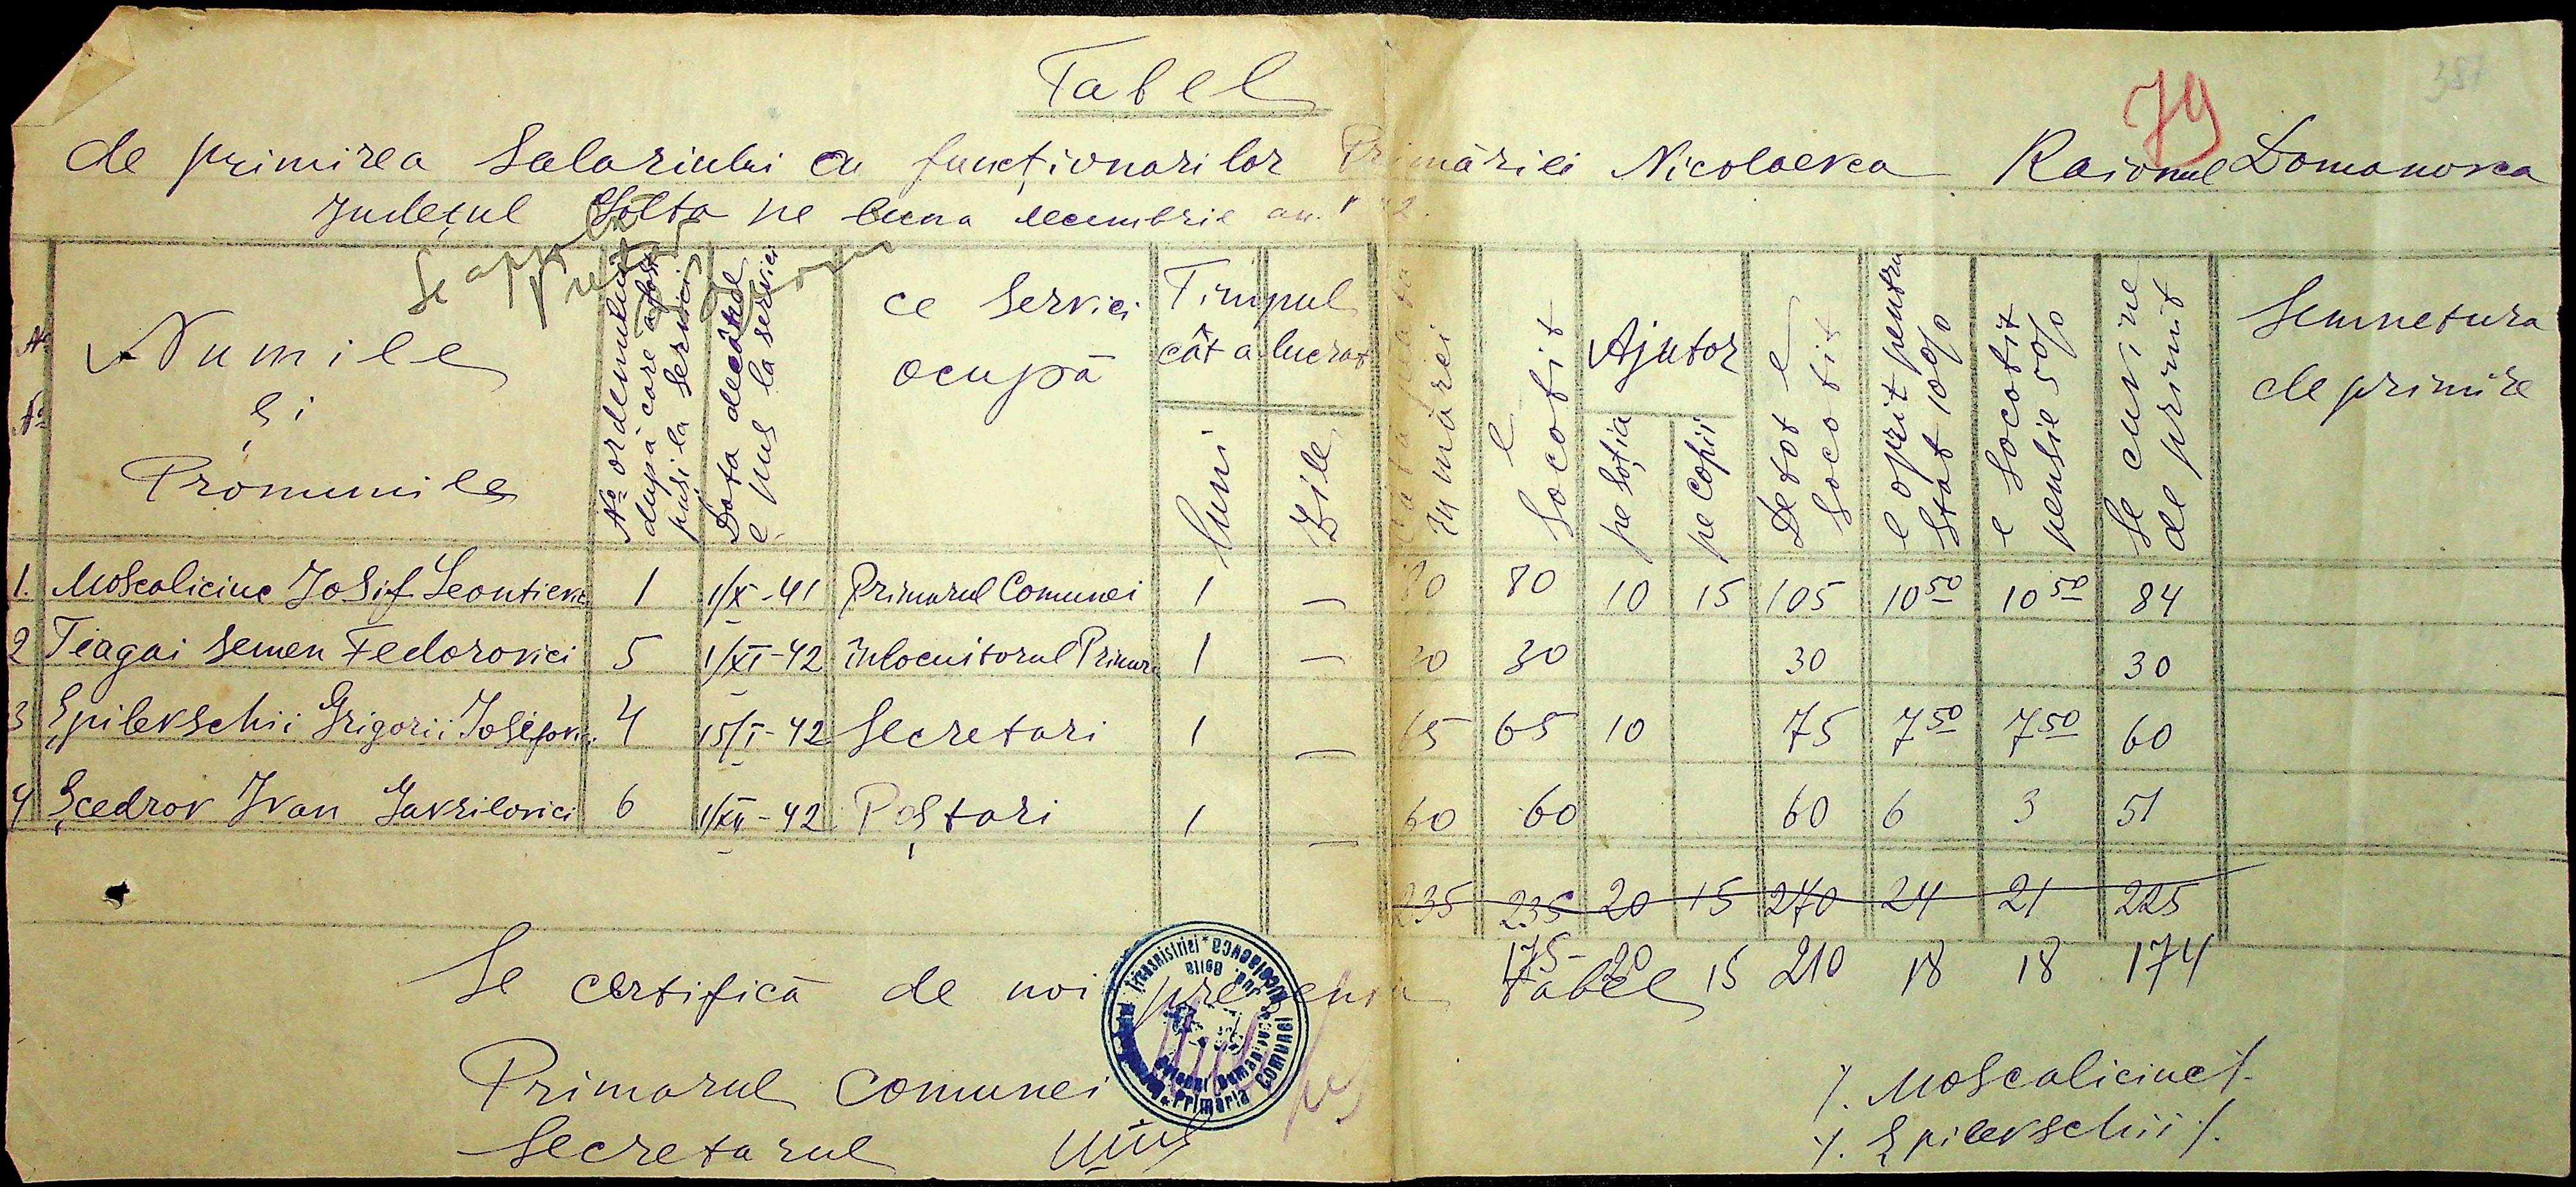 387
79
Tabel
de primirea Salariului cu funcționarilor Primăriei Nicolaevca Raionul Domanovca
Județul Golta pe luna decembrie an.
Se aprobă
Pretor
No No
Numile și Pronumile
No ordenului după care a fost pus la servici
Data decătre e pus la servici
ce Servici ocupă
Timpul cât a lucrat
luni
Zile
e Socotit
Ajutor
pe soția
pe copii
De tot e Socotit
e oprit pentru Stat 10%
e Socotit pensie 5%
Se cuvine de primit
Semnetura de primire
1. Moscaliciuc Josif Leontievici 1 1/X-41 Primarul Comunei 1 — 80 80 10 15 105 10 50 10 50 84
2 Teagai Semen Fedorovici 5 1/XI-42 înlocuitorul Primar 1 — 30 30 30 30
3 Șpilevschii Grigorii Josipovici 4 15/I-42 Secretari 1 — 65 65 10 75 7 50 7 50 60
4 Șcedrov Jvan Gavrilovici 6 1/XII-42 Poștari 1 — 60 60 60 6 3 51
235 235 20 15 270 24 21 225
175- 20 15 210 18 18 174
Se certifică de noi prezenta tabel
Primarul comunei
Secretarul
/. Moscaliciuc /.
/. Șpilevschii /.
Primăria Comunei Nicolaevca
Jud. Golta